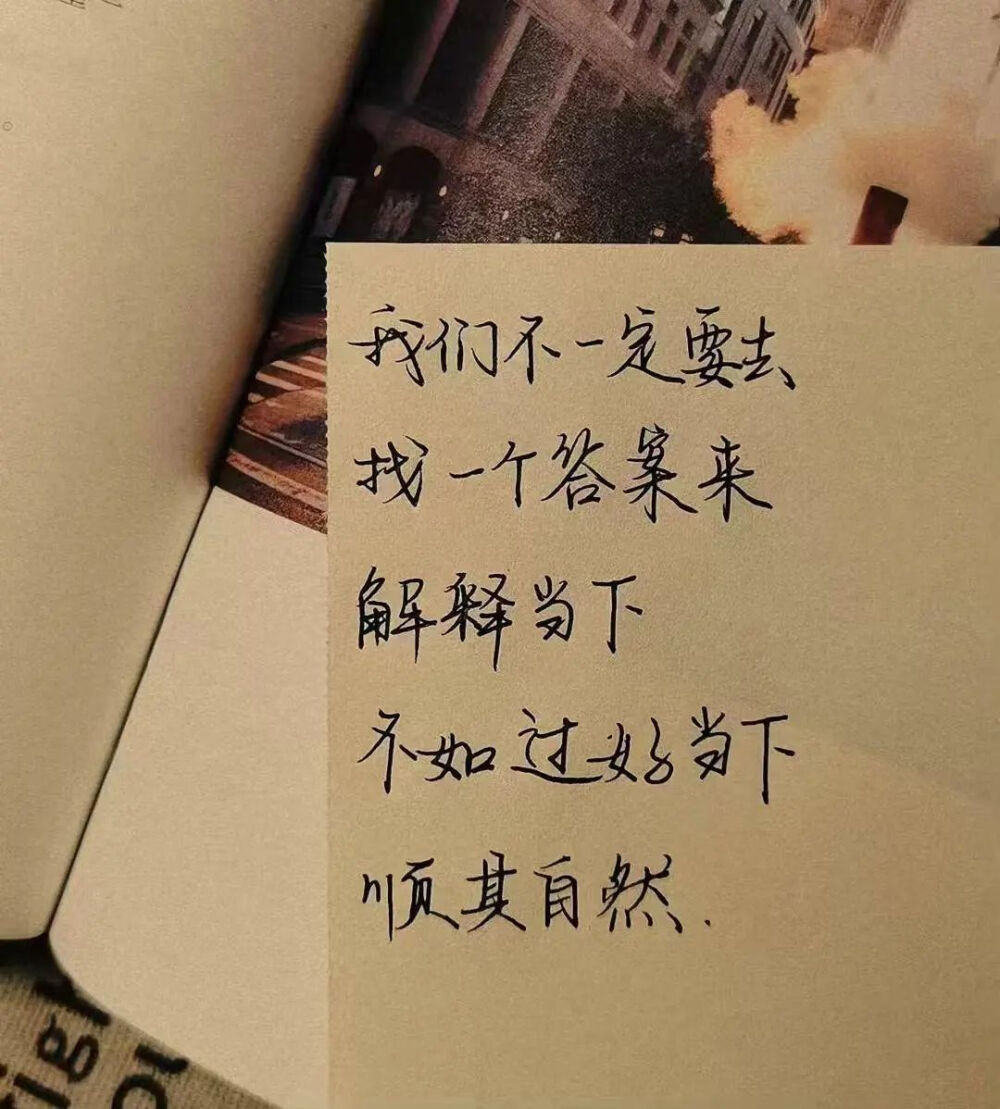 我们不一定要去
找一个答案来
解释当下
不如过好当下
顺其自然.